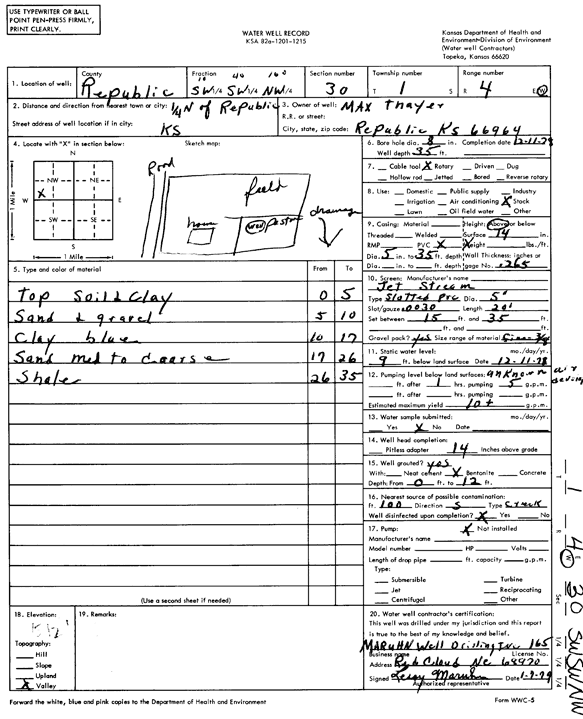 USE TYPEWRITER OR BALL
POINT PEN-PRESS FIRMLY,
PRINT CLEARLY.
WATER WELL RECORD
KSA 82a-1201-1215
Kansas Department of Health and
Environment-Division of Environment
(Water well Contractors)
Topeka, Kansas 66620
1. Location of well: County Republic Fraction SW 1/4 SW 1/4 NW 1/4 Section number 30 Township number T 1 S Range number R 4 E/W
2. Distance and direction from nearest town or city: 1/4 N of Republic
Street address of well location if in city: KS
3. Owner of well: MAX Thayer
R.R. or street:
City, state, zip code: Republic KS 66964
4. Locate with "X" in section below:
Sketch map:
N
NW NE
X
W E
SW SE
S
1 Mile
1 Mile
Road
field
house
well
pasture
drainage
5. Type and color of material From To
Top Soil & Clay 0 5
Sand & gravel 5 10
Clay blue 10 17
Sand med to coarse 17 26
Shale 26 35
(Use a second sheet if needed)
6. Bore hole dia. 8 in. Completion date 12-11-78
Well depth 35 ft.
7. Cable tool X Rotary Driven Dug
Hollow rod Jetted Bored Reverse rotary
8. Use: Domestic Public supply Industry
Irrigation Air conditioning X Stock
Lawn Oil field water Other
9. Casing: Material Height: Above or below
Threaded Welded Surface 14 in.
RMP PVC X Weight lbs./ft.
Dia. 5 in. to 35 ft. depth Wall Thickness: inches or
Dia. in. to ft. depth gage No. .265
10. Screen: Manufacturer's name
Jet Stream
Type Slotted pvc Dia. 5"
Slot/gauze .0030 Length 20'
Set between 15 ft. and 35 ft.
ft. and ft.
Gravel pack? yes Size range of material
11. Static water level: mo./day/yr.
9 ft. below land surface Date 12-11-78
12. Pumping level below land surfaces: unknown
ft. after 1 hrs. pumping 5 g.p.m.
ft. after hrs. pumping g.p.m.
Estimated maximum yield 10+ g.p.m.
air
13. Water sample submitted: mo./day/yr.
Yes X No Date
14. Well head completion:
Pitless adapter 14 Inches above grade
15. Well grouted? yes
With: Neat cement X Bentonite Concrete
Depth: From 0 ft. to 12 ft.
16. Nearest source of possible contamination:
ft. 100 Direction S Type Creek
Well disinfected upon completion? X Yes No
17. Pump: X Not installed
Manufacturer's name
Model number HP Volts
Length of drop pipe ft. capacity g.p.m.
Type:
Submersible Turbine
Jet Reciprocating
Centrifugal Other
18. Elevation:
Topography:
Hill
Slope
Upland
X Valley
19. Remarks:
20. Water well contractor's certification:
This well was drilled under my jurisdiction and this report
is true to the best of my knowledge and belief.
MARUHN Well Drilling Inc 165
Business name License No.
Address Red Cloud Ne 68970
Signed Leroy Maruhn Date 1-9-79
Authorized representative
Forward the white, blue and pink copies to the Department of Health and Environment
Form WWC-5
T 1 R 4 E W Sec 30 SW SW NW
1/4 1/4 1/4